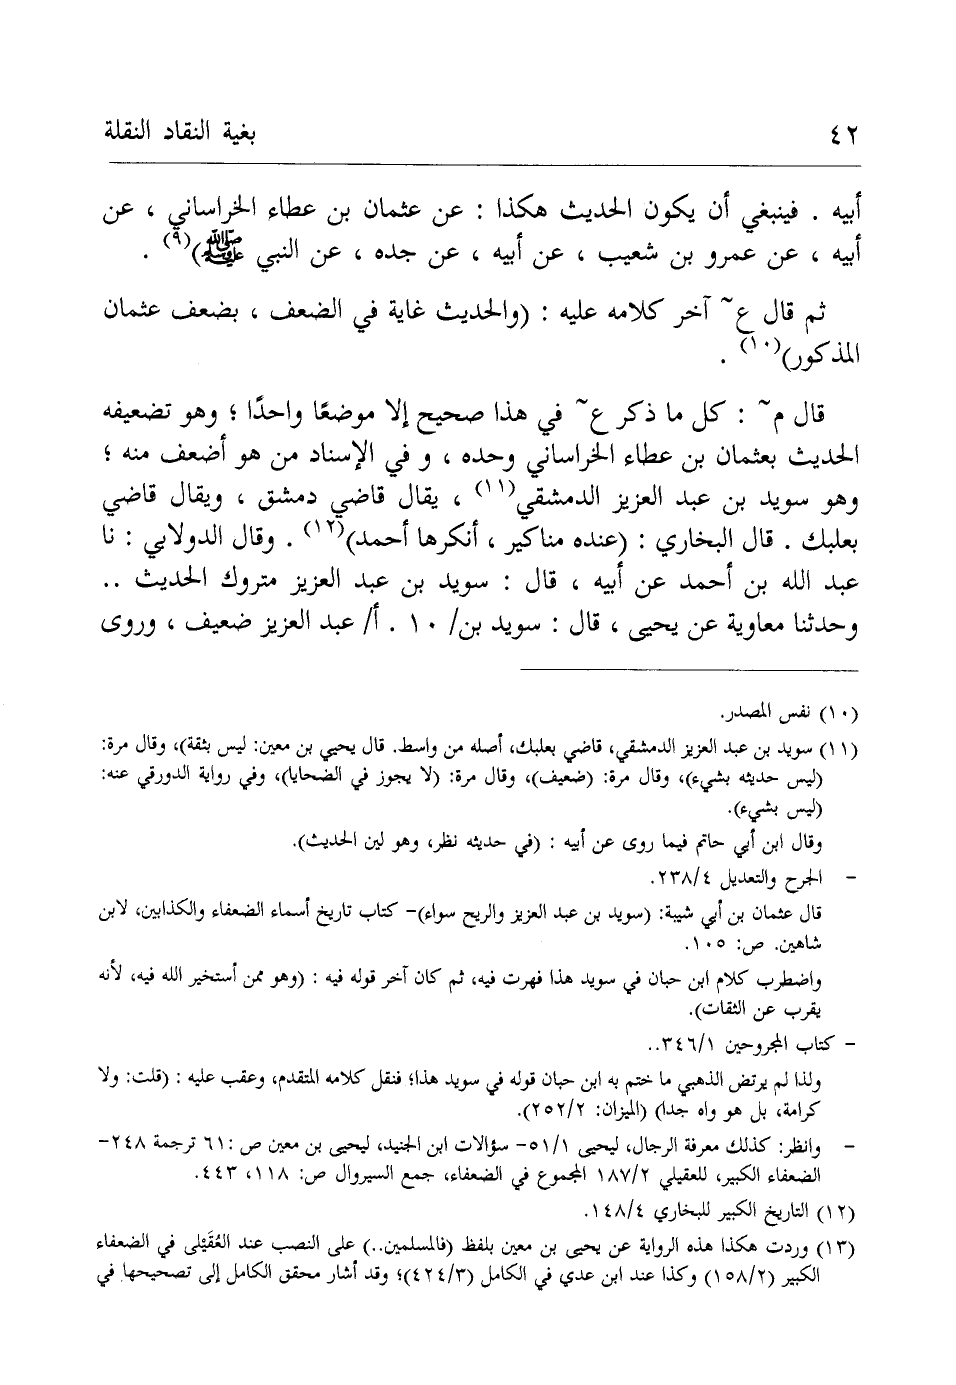 ٤٢
بغية النقاد النقلة
أبيه . فينبغي أن يكون الحديث هكذا : عن عثمان بن عطاء الخراساني ، عن
أبيه ، عن عمرو بن شعيب ، عن أبيه ، عن جده ، عن النبي ﷺ)(٩) .
ثم قال ع~ آخر كلامه عليه : (والحديث غاية في الضعف ، بضعف عثمان
المذكور)(١٠) .
قال م~ : كل ما ذكر ع~ في هذا صحيح إلا موضعًا واحدًا ؛ وهو تضعيفه
الحديث بعثمان بن عطاء الخراساني وحده ، و في الإسناد من هو أضعف منه ؛
وهو سويد بن عبد العزيز الدمشقي(١١) ، يقال قاضي دمشق ، ويقال قاضي
بعلبك . قال البخاري : (عنده مناكير ، أنكرها أحمد)(١٢) . وقال الدولابي : نا
عبد الله بن أحمد عن أبيه ، قال : سويد بن عبد العزيز متروك الحديث ..
وحدثنا معاوية عن يحيى ، قال : سويد بن/ ١٠ . أ/ عبد العزيز ضعيف ، وروى
(١٠) نفس المصدر.
(١١) سويد بن عبد العزيز الدمشقي، قاضي بعلبك، أصله من واسط. قال يحيي بن معين: ليس بثقة)، وقال مرة:
(ليس حديثه بشيء)، وقال مرة: (ضعيف)، وقال مرة: (لا يجوز في الضحايا)، وفي رواية الدورقي عنه:
(ليس بشيء).
وقال ابن أبي حاتم فيما روى عن أبيه : (في حديثه نظر، وهو لين الحديث).
- الجرح والتعديل ٢٣٨/٤.
قال عثمان بن أبي شيبة: (سويد بن عبد العزيز والريح سواء)- كتاب تاريخ أسماء الضعفاء والكذابين، لابن
شاهين. ص: ١٠٥.
واضطرب كلام ابن حبان في سويد هذا فهرت فيه، ثم كان آخر قوله فيه : (وهو ممن أستخير الله فيه، لأنه
يقرب عن الثقات).
- كتاب المجروحين ٣٤٦/١..
ولذا لم يرتض الذهبي ما ختم به ابن حبان قوله في سويد هذا؛ فنقل كلامه المتقدم، وعقب عليه : (قلت: ولا
كرامة، بل هو واه جدا) (الميزان: ٢٥٢/٢).
- وانظر: كذلك معرفة الرجال، ليحيى ٥١/١- سؤالات ابن الجنيد، ليحيى بن معين ص :٦١ ترجمة ٢٤٨-
الضعفاء الكبير، للعقيلي ١٨٧/٢ المجموع في الضعفاء، جمع السيروال ص: ١١٨، ٤٤٣.
(١٢) التاريخ الكبير للبخاري ١٤٨/٤.
(١٣) وردت هكذا هذه الرواية عن يحيى بن معين بلفظ (فالمسلمين..) على النصب عند العُقَيْلى في الضعفاء
الكبير (١٥٨/٢) وكذا عند ابن عدي في الكامل (٤٢٤/٣)؛ وقد أشار محقق الكامل إلى تصحيحها في